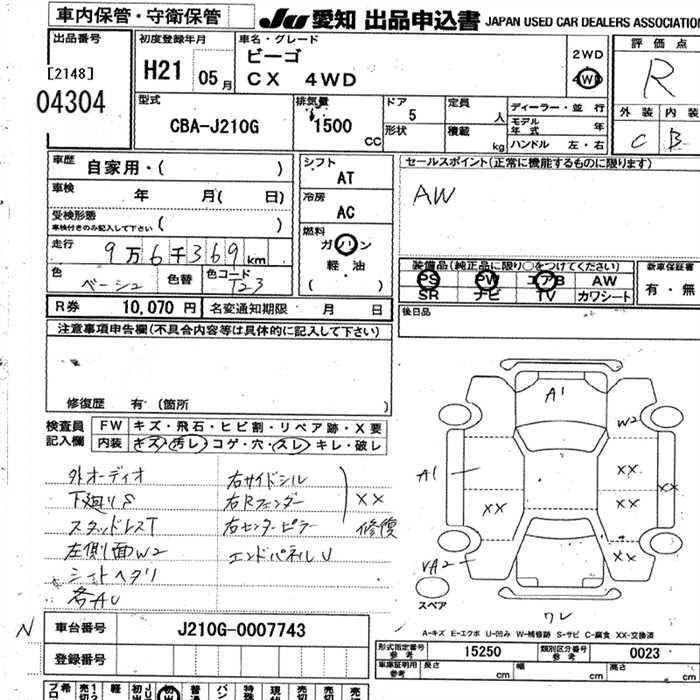 車内保管・守衛保管
JU 愛知 出品申込書 JAPAN USED CAR DEALERS ASSOCIATION
出品番号
[2148]
04304
初度登録年月
H21 05月
車名・グレード
ビーゴ
CX 4WD
2WD
4WD
評価点
R
外装 内装
C B
型式
CBA-J210G
排気量
1500 CC
ドア
5
形状
定員 人
積載 kg
ディーラー・並行
モデル年式 年
ハンドル 左・右
車歴 自家用・( )
車検 年 月( 日)
受検形態
車検付きのみ記入して下さい ( )
走行 9万6千369km
色 ベージュ 色替 色コード T23
R券 10,070 円 名変通知期限 月 日
シフト
AT
冷房
AC
燃料
ガソリン
軽油
( )
セールスポイント(正常に機能するものに限ります)
AW
装備品(純正品に限り○をつけてください)
PS PW エアB AW
SR ナビ TV カワシート
新車保証書
有・無
後日品
注意事項申告欄(不具合内容等は具体的に記入して下さい)
修復歴 有(箇所 )
検査員記入欄
FW キズ・飛石・ヒビ割・リペア跡・X要
内装 キズ・汚レ・コゲ・穴・スレ・キレ・破レ
外オーディオ
下廻りS
スタッドレスT
左側面W2
シートヘタリ
各AU
右サイドシル
右Rフェンダー
右センターピラー
エンドパネルU
XX
修復
A1
W2
A1
XX
XX
XX
XX
XX
VA2
スペア
ワレ
A-キズ E-エクボ U-凹み W-補修跡 S-サビ C-腐食 XX-交換済
N
車台番号 J210G-0007743
登録番号
形式指定番号 参考 15250 類別区分番号 参考 0023
車庫証明用 参考 長さ cm 幅 cm 高さ cm